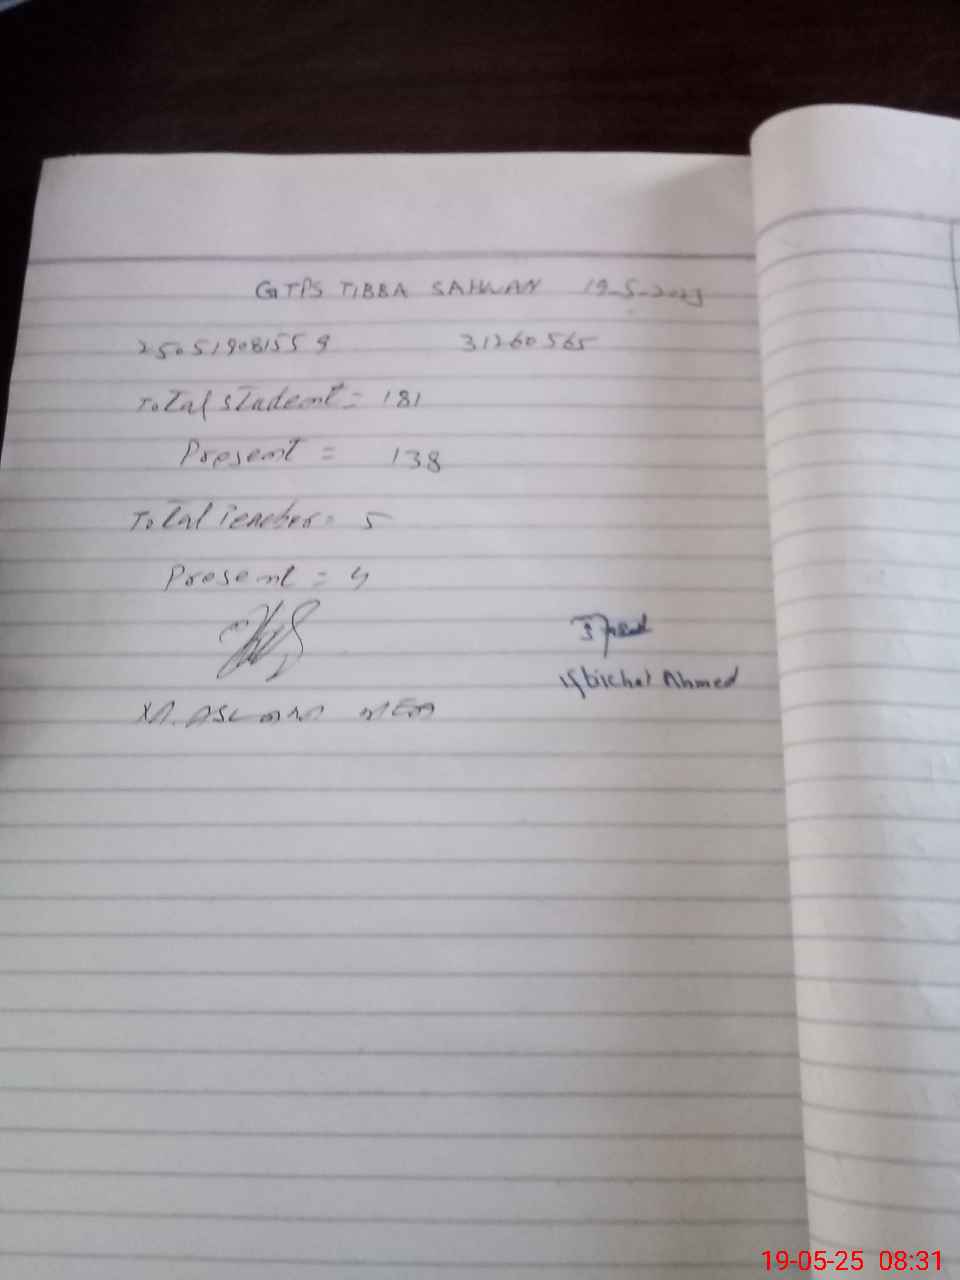 GTPS TIBBA SAHWAN 19-5-2025
250519081559 31260565
Total student = 181
Present = 138
Total Teacher = 5
Present = 4
Iftikhar Ahmed
M. ASLAM MEA
19-05-25 08:31